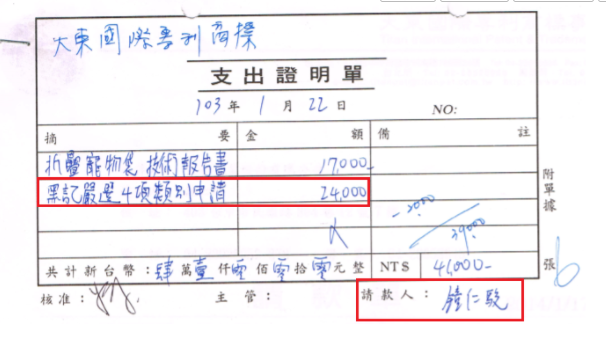 大東國際專利商標
支出證明單
103年1月22日 NO:
摘要 金額 備註
折疊寵物袋 技術報告書 17,000-
黑記嚴選4項類別申請 24,000
-2000
39000
附單據 張
共計新台幣:肆萬壹仟零佰零拾零元整 NT$ 41,000-
核准: 主管: 請款人: 鐘仁駿